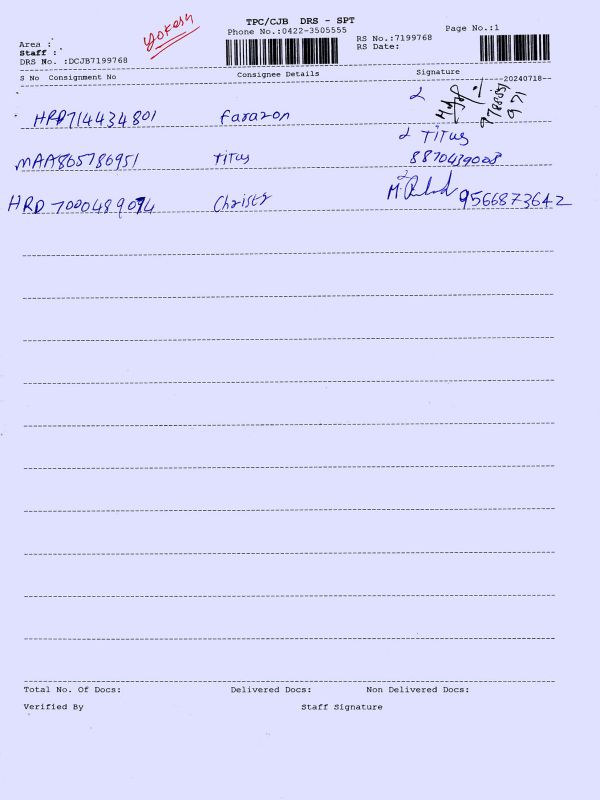 TPC/CJB DRS - SPT
Phone No.:0422-3505555
Page No.:1
RS No.:7199768
RS Date:
Yokesh
Area :
Staff :
DRS No. :DCJB7199768
S No Consignment No Consignee Details Signature
20240718
HRD714434801 Farazon
MAA865786951 Titus 2 Titus
8870439008
HRD 7000489074 Christy 9566873642
Total No. Of Docs: Delivered Docs: Non Delivered Docs:
Verified By Staff Signature